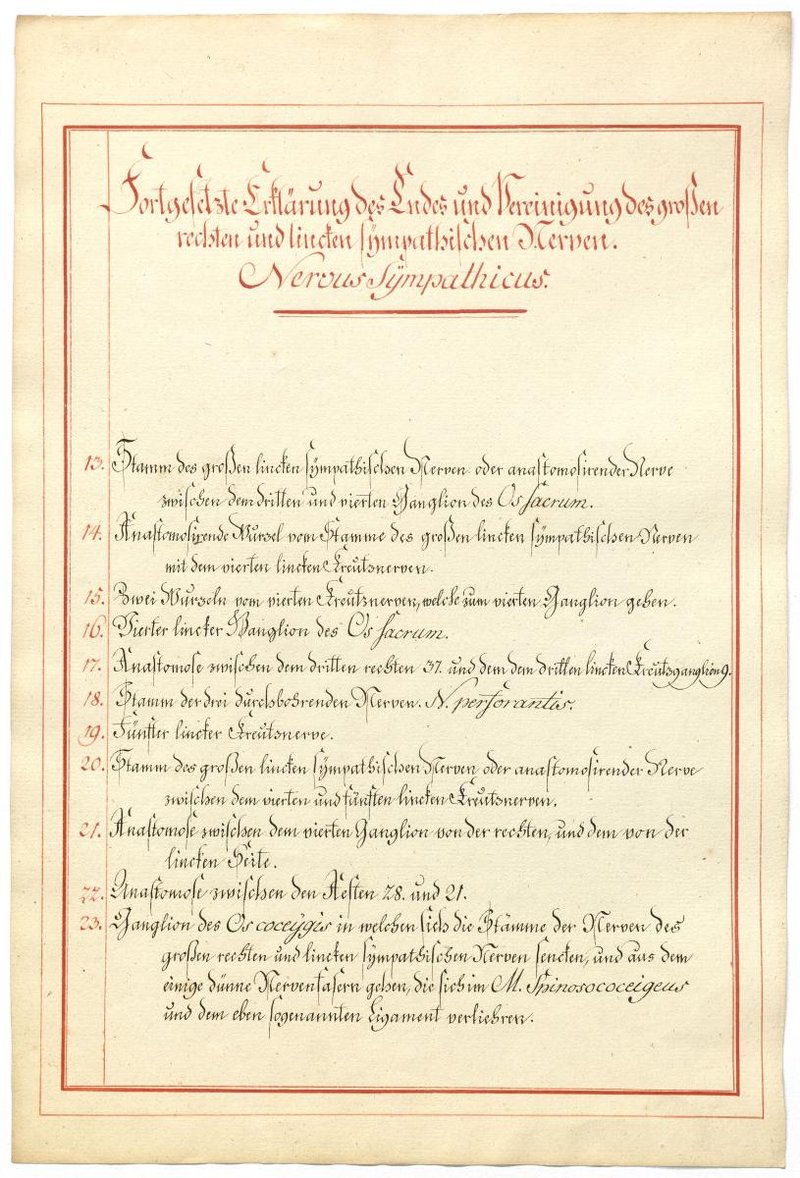 Fortgesetzte Erklärung des Endes und Vereinigung des großen
rechten und lincken sÿmpathischen Nerven.
Nervus Sÿmpathicus.
13. Stamm des großen lincken sÿmpathischen Nerven oder anastomosirender Nerve
zwischen dem dritten und vierten Ganglion des Os sacrum.
14. Anastomosirende Wurzel vom Stamme des großen lincken sÿmpathischen Nerven
mit dem vierten lincken Kreutznerven.
15. Zwei Wurzeln vom vierten Kreutznerven, welche zum vierten Ganglion gehen.
16. Vierter lincker Ganglion des Os sacrum.
17. Anastomose zwischen dem dritten rechten 37. und dem dem dritten lincken Kreutzganglion 9.
18. Stamm der drei durchbohrenden Nerven. N. perforantis.
19. Fünfter lincker Kreutznerve.
20. Stamm des großen lincken sÿmpathischen Nerven oder anastomosirender Nerve
zwischen dem vierten und fünften lincken Kreutznerven.
21. Anastomose zwischen dem vierten Ganglion von der rechten, und dem von der
lincken Seite.
22. Anastomose zwischen den Aesten 28. und 21.
23. Ganglion des Os coccÿgis in welchen sich die Stämme der Nerven des
großen rechten und lincken sÿmpathischen Nerven sencken, und aus dem
einige dünne Nervenfasern gehen, die sich im M. Spinosococcigeus
und dem eben sogenannten Ligament verliehren.